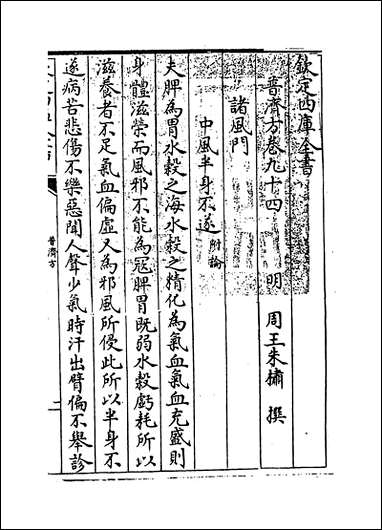 欽定四庫全書
普濟方卷九十四　明　周王朱橚　撰
諸風門
中風半身不遂附論
夫脾為胃水穀之海水穀之精化為氣血氣血充盛則
身體滋榮而風邪不能為寇脾胃既弱水穀虧耗所以
滋養者不足氣血偏虛又為邪風所侵此所以半身不
遂病苦悲傷不樂惡聞人聲少氣時汗出臂偏不舉診
普濟方